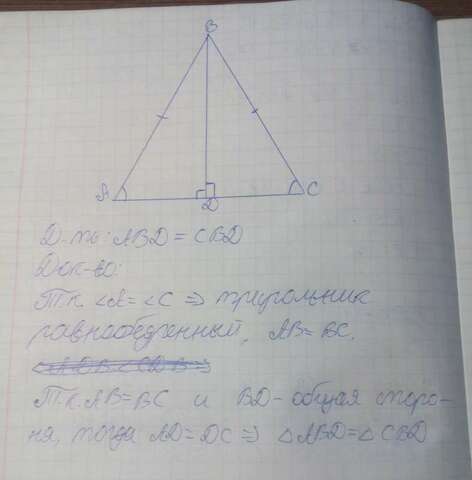 B
A
C
D
Д-ть: ABD = CBD
Док-во:
Т.к. ∠A = ∠C ⇒ треугольник
равнобедренный, AB = BC.
Т.к. AB = BC и BD - общая сторо-
на, тогда AD = DC ⇒ △ ABD = △ CBD